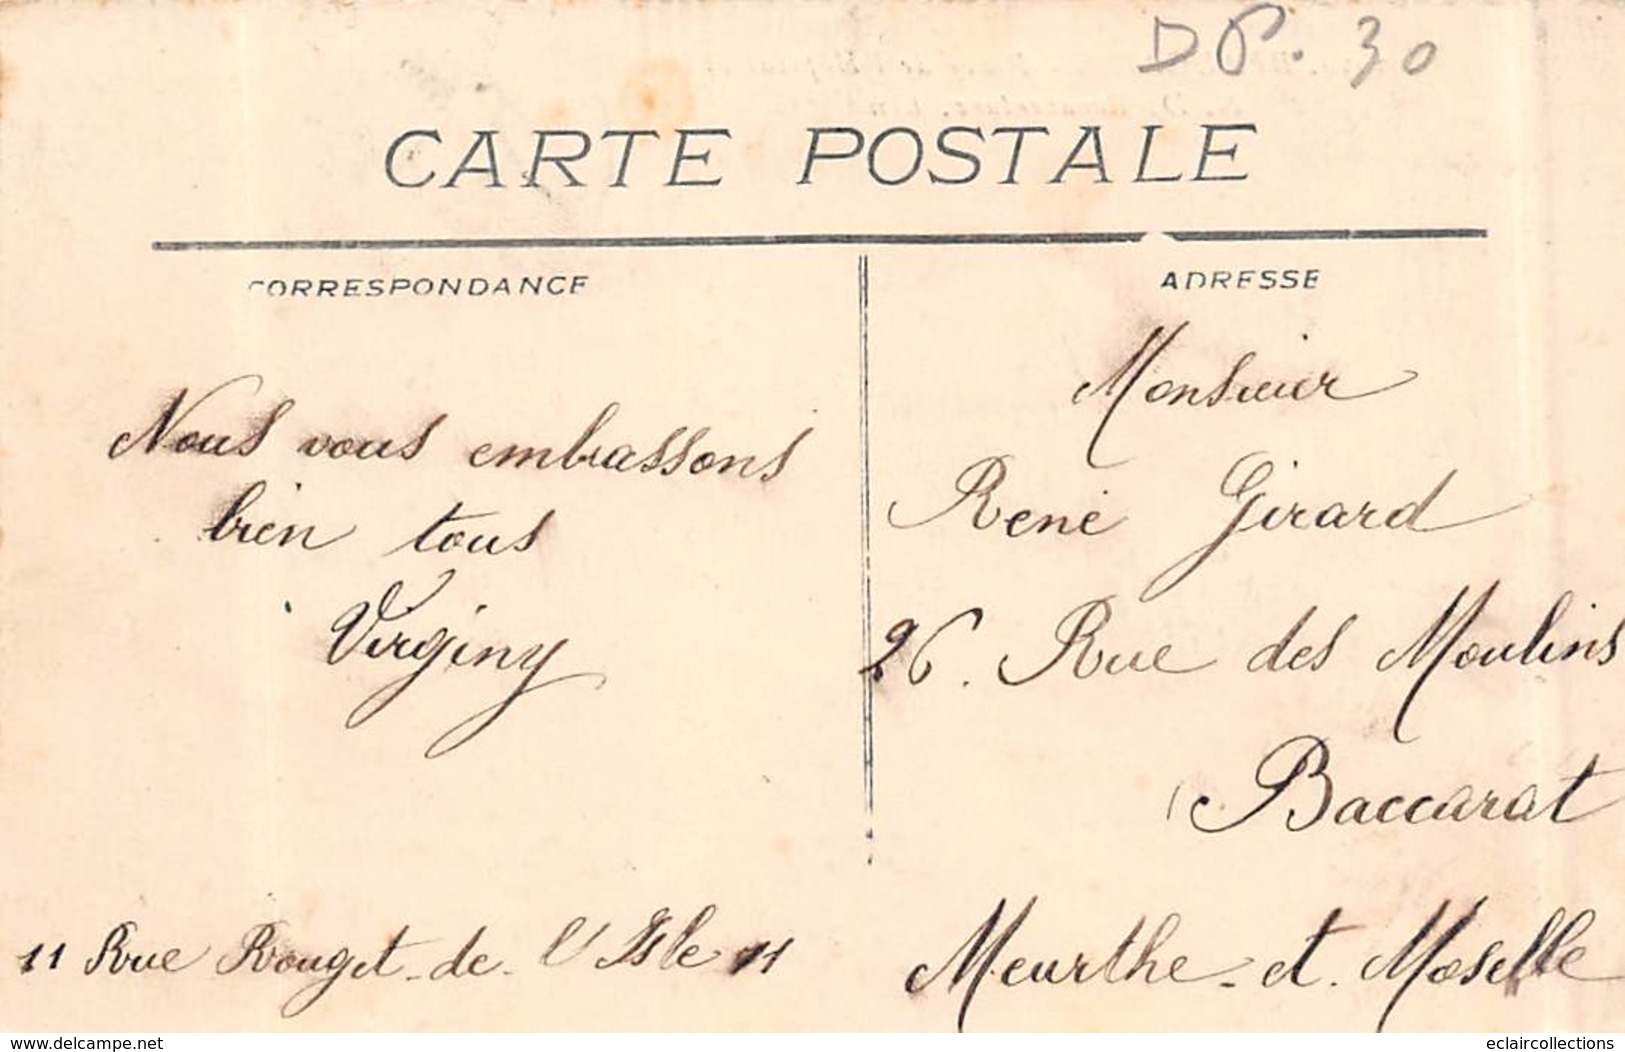 DP. 30
CARTE POSTALE
CORRESPONDANCE
ADRESSE
Nous vous embrassons
bien tous
Virginy
11 Rue Rouget-de-l'Isle 11
Monsieur
René Girard
26. Rue des Moulins
Baccarat
Meurthe-et-Moselle
www.delcampe.net
eclaircollections